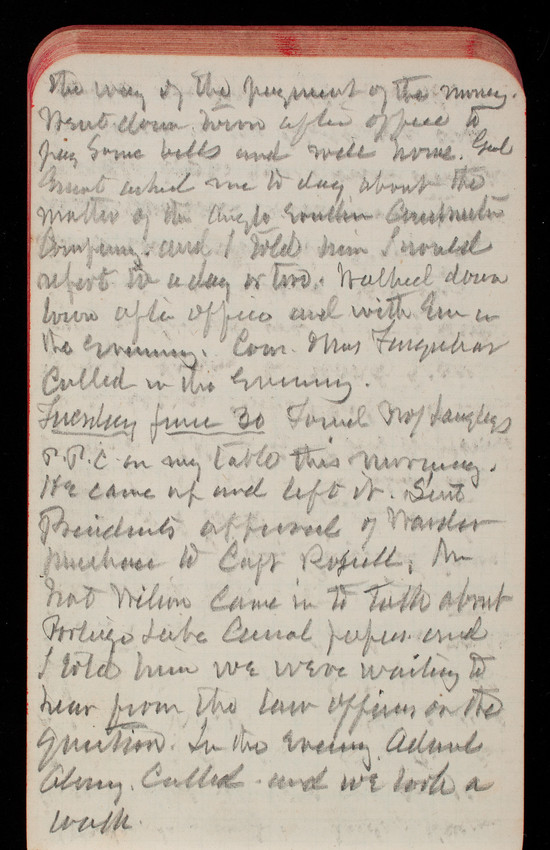 the way of the payment of the money.
Went down town after office to
pay some bills and walk home. Genl
Grant asked me to day about the
matter of the Anglo Construction
Company. and I told him I would
report in a day or two. Walked down
town after office and with Em in
the evening. Com. & Mrs Farquhar
Called in the Evening.
Tuesday June 30 Found Prof Langleys
P.P.C on my table this morning.
He came up and left it. Sent
Presidents approval of Warder
purchase to Capt Rossell. Mr
Nat Wilson came in to talk about
Portage Lake Canal papers and
I told him we were waiting to
hear from the law officers on the
question. In the Evening Adml
Almy Called and we took a
walk.